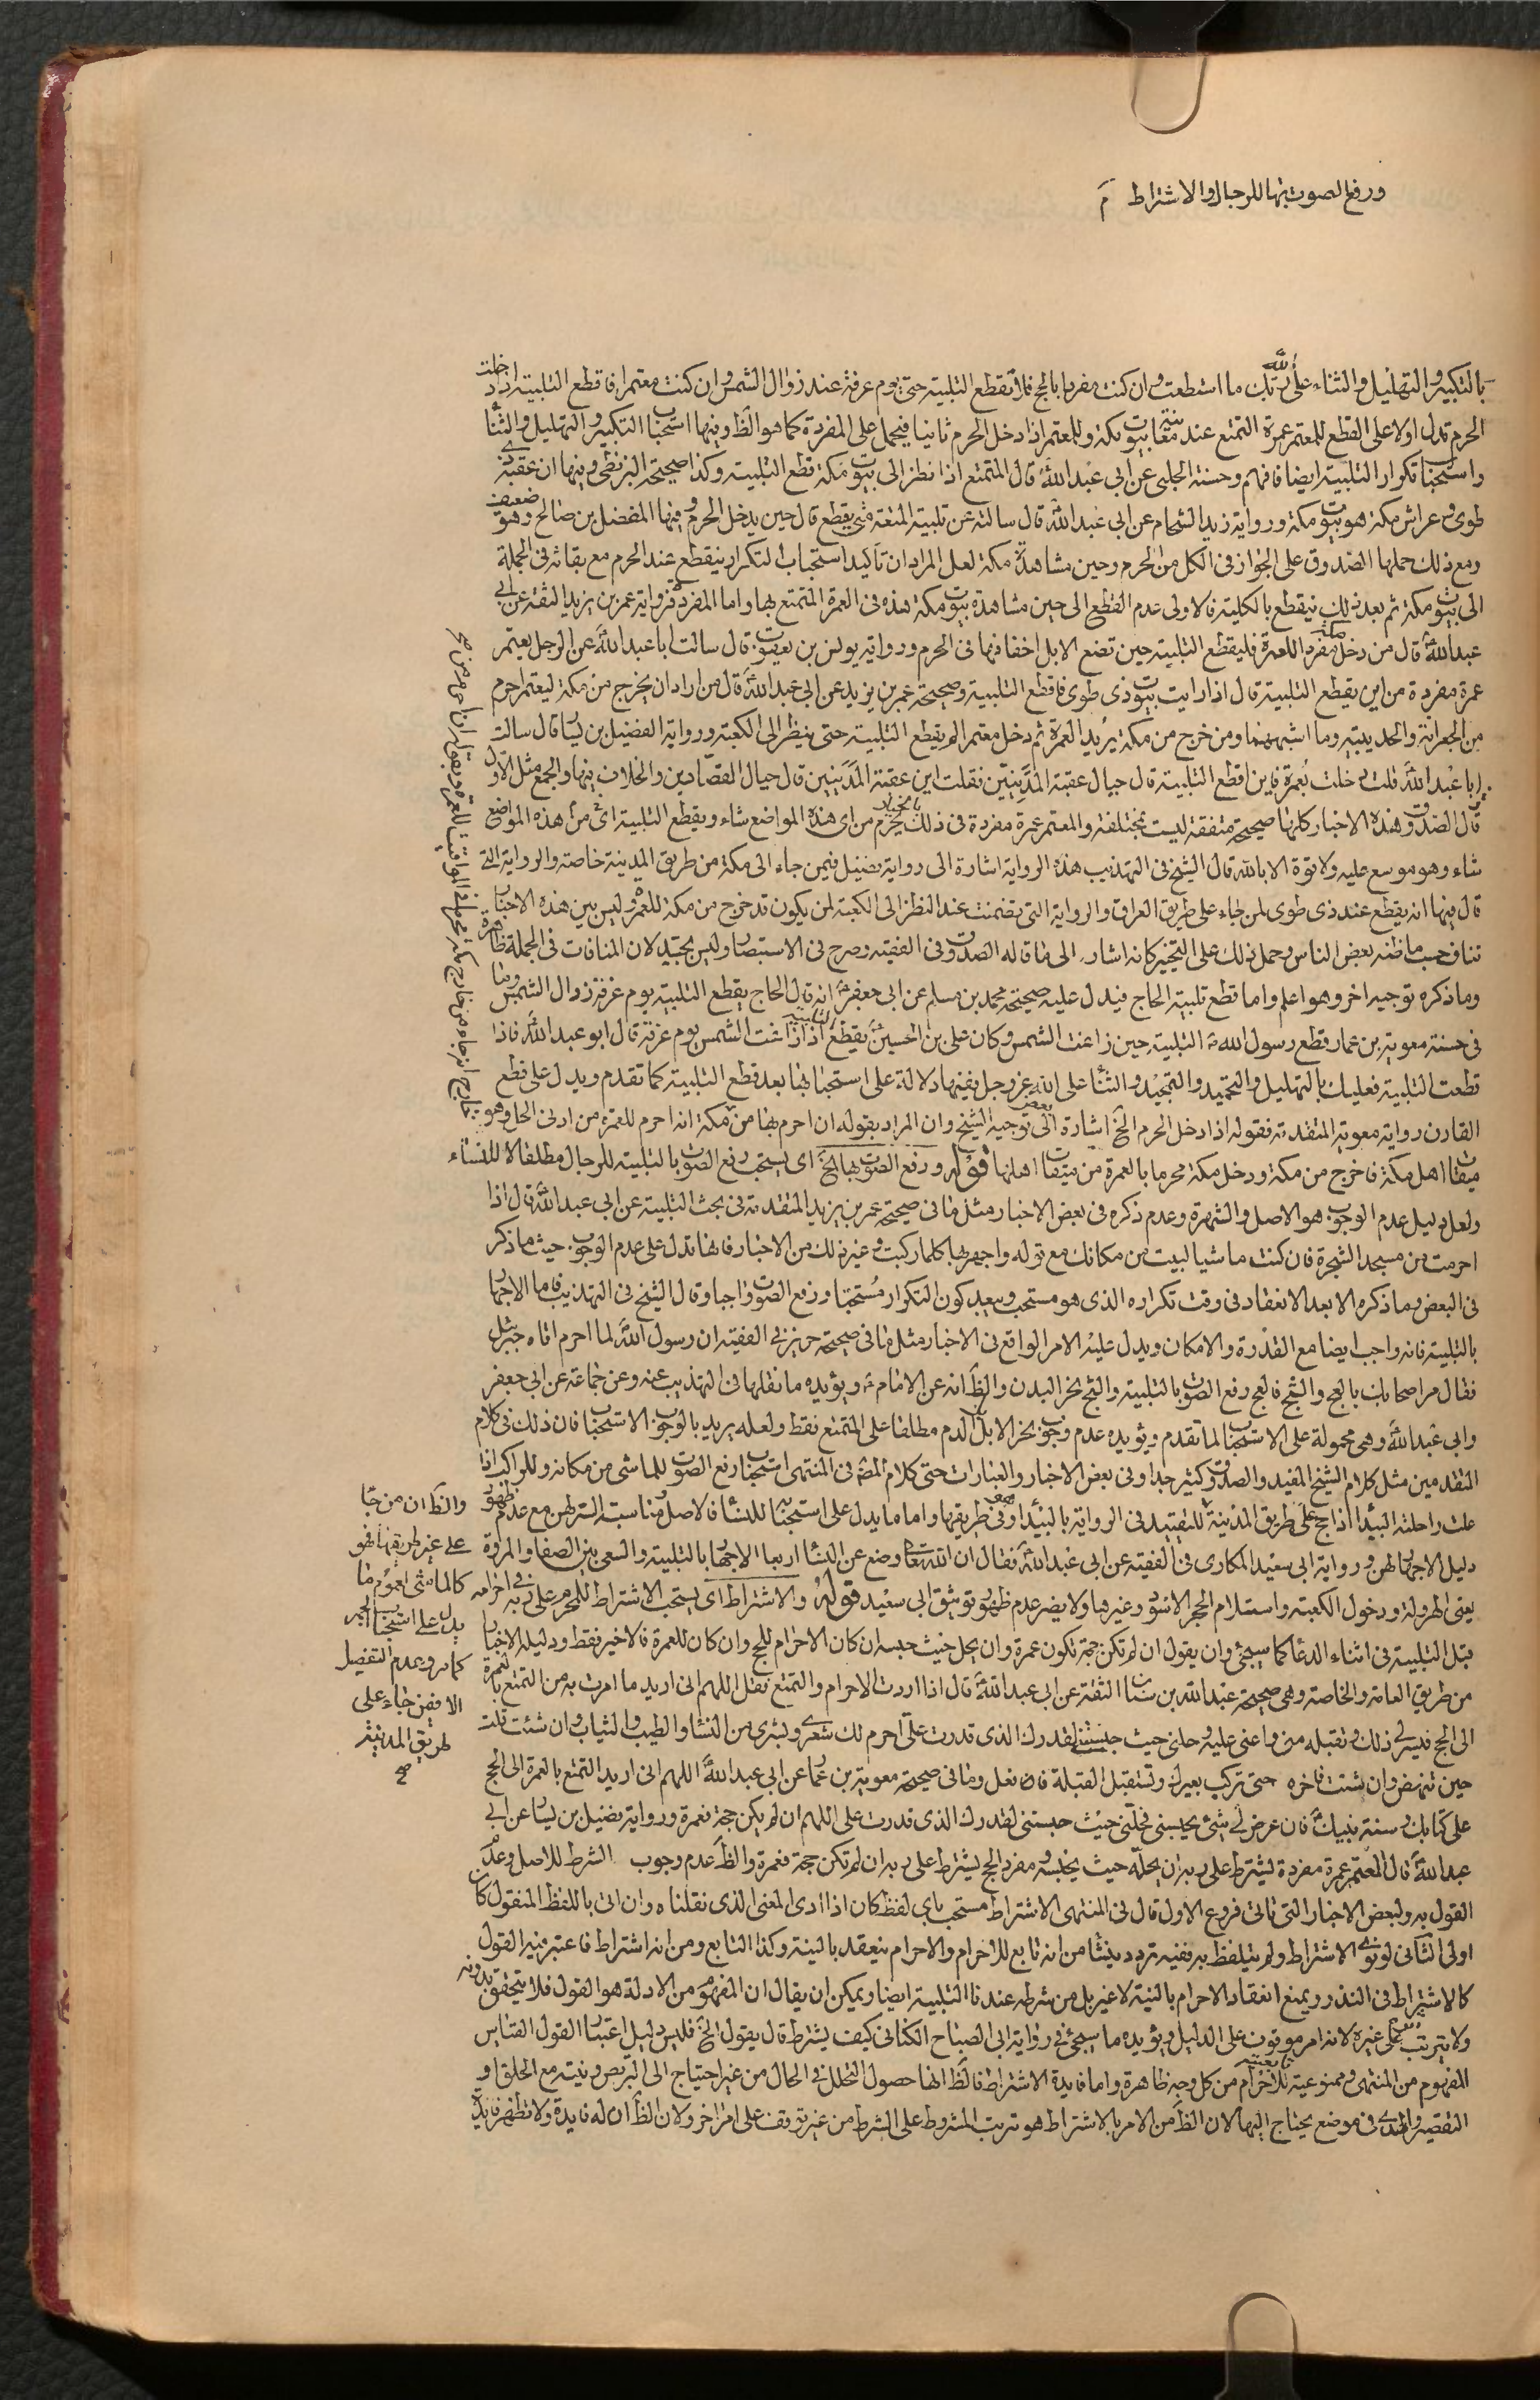 ورفع الصوت بها للرجال والاشتراط م
بالتكبير والتهليل والثناء على الله ربك ما استطعت وان كنت مفردا بالحج فلا تقطع التلبية حتى يوم عرفة عند زوال الشمس وان كنت معتمرا فاقطع التلبية اذا دخلت
الحرم تدل اولا على القطع للمعتمر عمرة التمتع عند معاينة بيوت مكة وللمعتمر اذا دخل الحرم ثانيا فيحمل على المفردة كما هو الظ وفيها استحباب التكبير والتهليل والثناء
واستحباب تكرار التلبية ايضا فافهم وحسنة الحلبى عن ابى عبد الله قال المتمتع اذا نظر الى بيوت مكة قطع التلبية وكذا صحيحة البزنطى وفيها ان عقبة ذى
طوى وعراش مكة هو بيوت مكة ورواية زيد الشحام عن ابى عبد الله قال سالته عن تلبية المتعة متى يقطع قال حين يدخل الحرم وفيها المفضل بن صالح وهو ضعيف
ومع ذلك حملها الصدوق على الجواز فى الكل من الحرم وحين مشاهدة مكة لعل المراد ان تاكيد استحباب التكرار ينقطع عند الحرم مع بقائه فى الجملة
الى بيوت مكة ثم بعد ذلك ينقطع بالكلية فالاولى عدم القطع الى حين مشاهدة بيوت مكة هذه فى العمرة المتمتع بها واما المفردة فرواية عمر بن يزيد الثقة عن ابى
عبد الله قال من دخل مكة مفردا للعمرة فليقطع التلبية حين تضع الابل اخفافها فى الحرم ورواية يونس بن يعقوب قال سالت ابا عبد الله عن الرجل يعتمر
عمرة مفردة من اين يقطع التلبية قال اذا رايت بيوت ذى طوى فاقطع التلبية وصحيحة عمر بن يزيد عن ابى عبد الله قال من اراد ان يخرج من مكة ليعتمر احرم
من الجعرانة والحديبية وما اشبههما ومن خرج من مكة يريد العمرة ثم دخل معتمرا لم يقطع التلبية حتى ينظر الى الكعبة ورواية الفضيل بن يسار قال سالت
ابا عبد الله قلت دخلت بعمرة فاين اقطع التلبية قال حيال عقبة المدنيين فقلت اين عقبة المدنيين قال حيال القصادين والخلاف بينها والجمع مثل الاول
قال الصدوق وهذه الاخبار كلها صحيحة متفقة ليست بمختلفة والمعتمر عمرة مفردة فى ذلك بالخيار يحرم من اى هذه المواضع شاء ويقطع التلبية اى من هذه المواضع
شاء وهو موسع عليه ولا قوة الا بالله قال الشيخ فى التهذيب هذه الرواية اشارة الى رواية فضيل فيمن جاء الى مكة من طريق المدينة خاصة والرواية التى
قال فيها انه يقطع عند ذى طوى لمن جاء على طريق العراق والرواية التى تضمنت عند النظر الى الكعبة لمن يكون قد خرج من مكة للعمرة وليس بين هذه الاخبار
تناف حسب ما ظنه بعض الناس وحمل ذلك على التخيير كانه اشار الى ما قاله الصدوق فى الفقيه وصرح فى الاستبصار وليس بجيد لان المنافات فى الجملة ظاهرة
وما ذكره توجيه اخر وهو اعلم واما قطع تلبية الحاج فيدل عليه صحيحة محمد بن مسلم عن ابى جعفر انه قال الحاج يقطع التلبية يوم عرفة زوال الشمس وما
فى حسنة معوية بن عمار قطع رسول الله التلبية حين زاغت الشمس وكان على بن الحسين يقطع التلبية اذا زاغت الشمس يوم عرفة قال ابو عبد الله فاذا
قطعت التلبية فعليك بالتهليل والتحميد والتمجيد والثناء على الله عز وجل وفيها دلالة على استحبابها بعد قطع التلبية كما تقدم ويدل على قطع
القارن رواية معوية المتقدمة فقوله اذا دخل الحرم الخ اشارة الى بعض توجيه الشيخ وان المراد بقوله ان احرم بها من مكة انه احرم للعمرة من ادنى الحل وهو
ميقات اهل مكة فاخرج من مكة ودخل مكة محرما بالعمرة من ميقات اهلها قوله ورفع الصوت بها الخ اى يستحب رفع الصوت بالتلبية للرجال مطلقا لا للنساء
ولعل دليل عدم الوجوب هو الاصل والشهرة وعدم ذكره فى بعض الاخبار مثل ما فى صحيحة عمر بن يزيد المتقدمة فى بحث التلبية عن ابى عبد الله قال اذا
احرمت من مسجد الشجرة فان كنت ماشيا لبيت من مكانك مع قوله واجهر بها كلما ركبت وغير ذلك من الاخبار فانها تدل على عدم الوجوب حيث ما ذكر
فى البعض وما ذكره الا بعد الانعقاد فى وقت تكراره الذى هو مستحب وبعيد كون التكرار مستحبا ورفع الصوت واجبا وقال الشيخ فى التهذيب فاما الاجهار
بالتلبية فانه واجب ايضا مع القدرة والامكان ويدل عليه الامر الواقع فى الاخبار مثل ما فى صحيحة حريز فى الفقيه ان رسول الله لما احرم اتاه جبرئيل
فقال مر اصحابك بالعج والثج فالعج رفع الصوت بالتلبية والثج نحر البدن والظ انه عن الامام ويؤيده ما نقلها فى التهذيب عنه وعن جماعة عن ابى جعفر
وابى عبد الله وهى محمولة على الاستحباب لما تقدم ويؤيده عدم وجوب نحر الابل بل الدم مطلقا على المتمتع فقط ولعله يريد بالوجوب الاستحباب فان ذلك فى كلام
المتقدمين مثل كلام الشيخ المفيد والصدوق كثير جدا وفى بعض الاخبار والعبارات حتى كلام المص فى المنتهى استحباب رفع الصوت للماشى من مكانه وللراكب اذا
علت راحلته البيداء اذا حج على طريق المدينة للتقييد فى الرواية بالبيداء وهى فى طريقها واما ما يدل على استحبابه للنساء فالاصل مناسبة الستر لهن مع عدم ظهور
دليل الاجهار لهن ورواية ابى سعيد المكارى فى الفقيه عن ابى عبد الله فقال ان الله تعالى وضع عن النساء اربعا الاجهار بالتلبية والسعى بين الصفا والمروة
يعنى الهرولة ودخول الكعبة واستلام الحجر الاسود وغيرها ولا يضر عدم ظهور توثيق ابى سعيد قوله والاشتراط اى يستحب الاشتراط للمحرم على ربه فى احرامه
قبل التلبية فى اثناء الدعاء كما سيجئ وان يقول ان لم تكن حجة تكون عمرة وان يحل حيث حبسه ان كان الاحرام للحج وان كان للعمرة فالاخير فقط ودليله الاخبار
من طريق العامة والخاصة وهى صحيحة عبد الله بن سنان الثقة عن ابى عبد الله قال اذا اردت الاحرام والتمتع فقل اللهم انى اريد ما امرت به من التمتع بالعمرة
الى الحج فيسر لى ذلك وتقبله منى واعنى عليه وحلنى حيث حبستنى لقدرك الذى قدرت على احرم لك شعرى وبشرى من النساء والطيب والثياب وان شئت قلت
حين تنهض وان شئت فاخره حتى تركب بعيرك وتستقبل القبلة فافعل وما فى صحيحة معوية بن عمار عن ابى عبد الله اللهم انى اريد التمتع بالعمرة الى الحج
على كتابك وسنة نبيك فان عرض لى شئ يحبسنى فحلنى حيث حبستنى لقدرك الذى قدرت على اللهم ان لم يكن حجة فعمرة ورواية فضيل بن يسار عن ابى
عبد الله قال المعتمر عمرة مفردة يشترط على ربه ان يحله حيث يحبسه ومفرد الحج يشترط على ربه ان لم تكن حجة فعمرة والظ عدم وجوب الشرط للاصل وعدم
القول به ولبعض الاخبار التى تاتى فروع الاول قال فى المنتهى الاشتراط مستحب باى لفظ كان اذا ادى المعنى الذى نقلناه وان اتى باللفظ المنقول كان
اولى الثانى لو نوى الاشتراط ولم يتلفظ به ففيه تردد ينشأ من انه تابع للاحرام والاحرام ينعقد بالنية وكذا التابع ومن انه اشتراط فاعتبر فيه القول
كالاشتراط فى النذر ويمنع انعقاد الاحرام بالنية لا غير بل من شرطه عندنا التلبية ايضا ويمكن ان يقال ان المفهوم من الادلة هو القول فلا يتحقق بدونه
ولا يترتب حكم على غيره لانه امر موقوف على الدليل ويؤيده ما سيجئ فى رواية ابى الصباح الكنانى كيف يشترط قال يقول الخ فليس دليل اعتبار القول القياس
المفهوم من المنتهى وممنوعية تابعيته للاحرام من كل وجه ظاهرة واما فايدة الاشتراط فالظ انها حصول التحلل فى الحال من غير احتياج الى التربص ونيته مع الحلق او
التقصير والهدى فى موضع يحتاج اليها لان الظ من الامر بالاشتراط هو ترتب المشروط على الشرط من غير توقف على امر اخر ولان الظ ان له فايدة ولا تظهر فايدة
والظ ان من جاء
على غير طريقها فهو
كالماشى لعموم ما
يدل على استحباب الجهر
كما مر وعدم التفصيل
الا فيمن جاء على
طريق المدينة